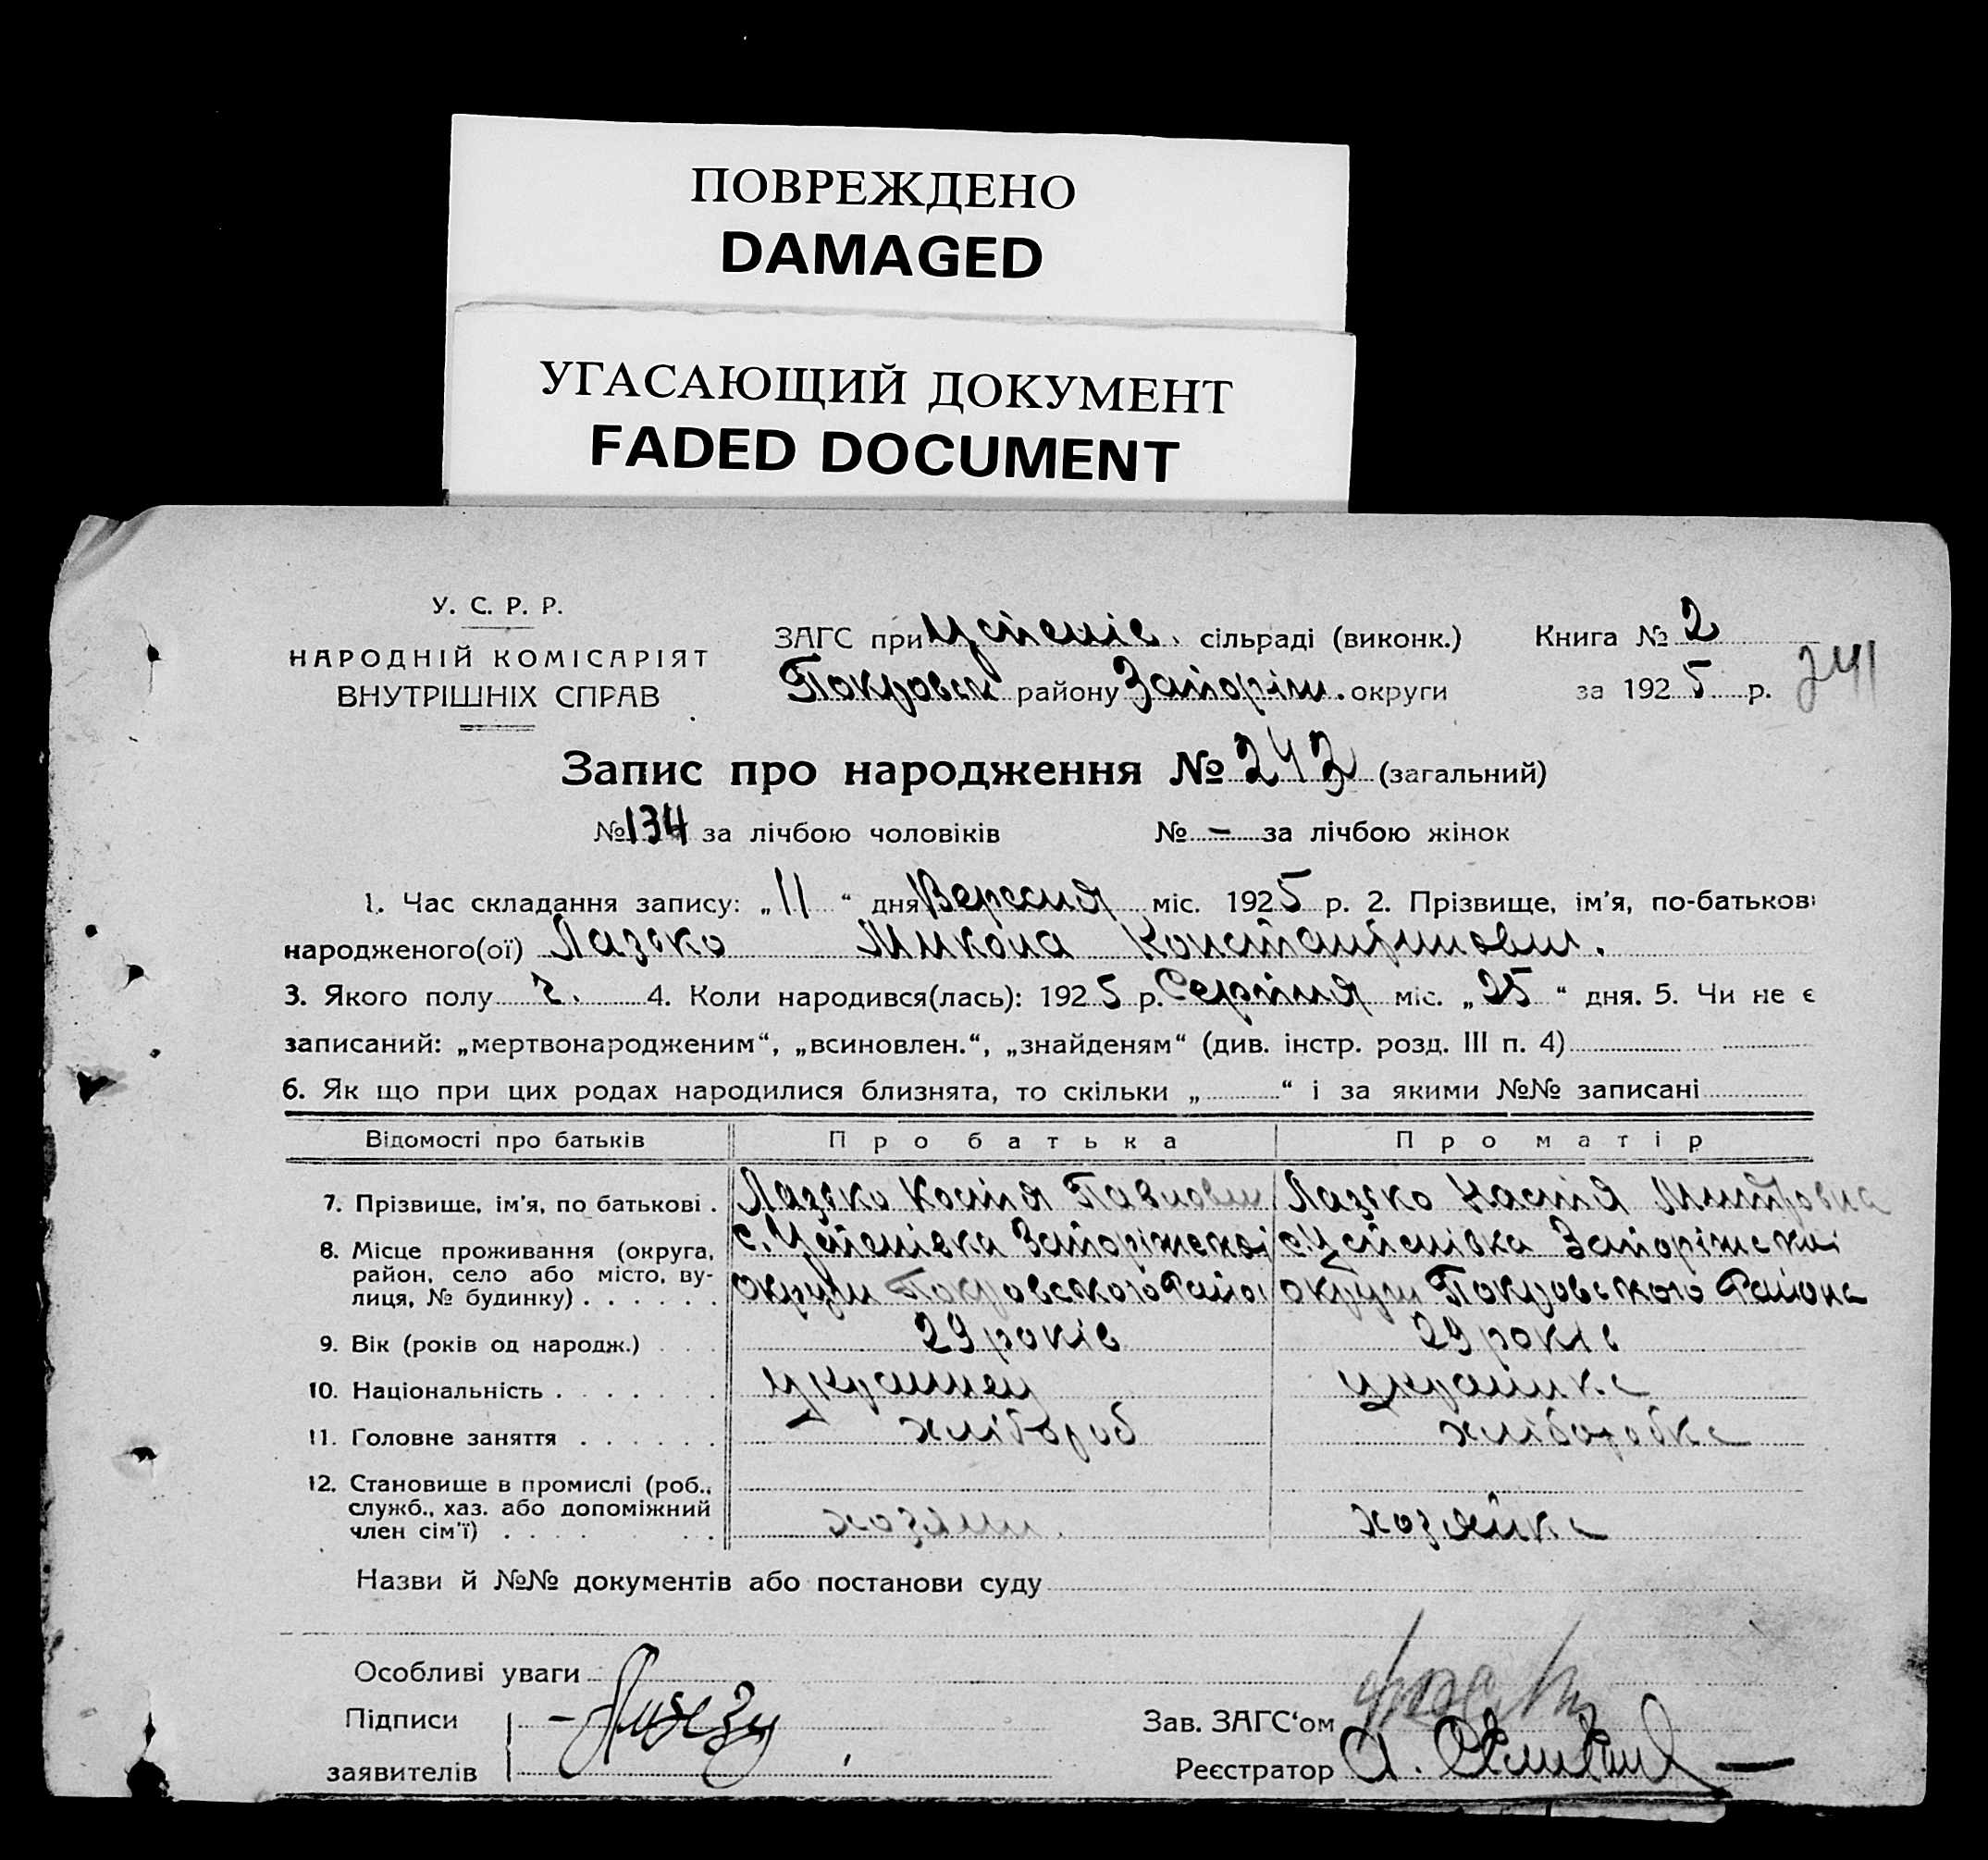 ПОВРЕЖДЕНО
DAMAGED
УГАСАЮЩИЙ ДОКУМЕНТ
FADED DOCUMENT
У. С. Р. Р.
НАРОДНІЙ КОМІСАРІЯТ
ВНУТРІШНІХ СПРАВ
ЗАГС при Успенів. сільраді (виконк.) Книга № 2
Покровськ району Запоріж. округи за 1925 р. 241
Запис про народження № 242 (загальний)
№ 134 за лічбою чоловіків № — за лічбою жінок
1. Час складання запису: „ 11 “ дня Вересня міс. 1925 р. 2. Прізвище, ім'я, по-батькові
народженого(ої) Лазько Микола Константинович.
3. Якого полу ч. 4. Коли народився(лась): 1925 р. Серпня міс. „ 25 “ дня. 5. Чи не є
записаний: „мертвонародженим“, „всиновлен.“, „знайденям“ (див. інстр. розд. III п. 4)
6. Як що при цих родах народилися близнята, то скільки „ “ і за якими №№ записані
Відомості про батьків Про батька Про матір
7. Прізвище, ім'я, по батькові . Лазько Костя Павлович Лазько Настя Митровна
8. Місце проживання (округа, с. Успенівка Запоріжської с. Успенівка Запоріжської
район, село або місто, ву-
лиця, № будинку) . . . . . . округи Покровського Райо округи Покровського Района
9. Вік (років од народж.) . . . 29 років 29 років
10. Національність . . . . . . . украинец украинка
11. Головне заняття . . . . . . хлібороб хліборобка
12. Становище в промислі (роб.,
служб., хаз. або допоміжний
член сім'ї) . . . . . . . хозяин. хозяйка
Назви й №№ документів або постанови суду
Особливі уваги
Підписи
Зав. ЗАГС‘ом
заявителів
Реєстратор А.